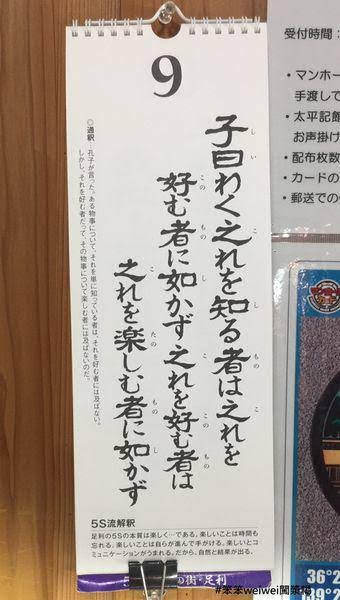 9
子曰わく之れを知る者は之れを
好む者に如かず之れを好む者は
之れを楽しむ者に如かず
◎通釈…孔子が言った。ある物事について、それを単に知っている者は、それを好む者には及ばない。
しかし、それを好む者だって、その物事について楽しむ者には及ばないのだ。
5S流解釈
足利の5Sの本質は楽しく…である。楽しいことは時間も
忘れる。楽しいことは自らが進んで手がける。楽しいとコ
ミュニケーションがうまれる。だから、自然と結果が出る。
の街・足利
受付時間：
・マンホー
手渡しで
・太平記館
お声掛け
・配布枚数
・カードの
・郵送での
36°2
#笨笨weiwei閱樂楹